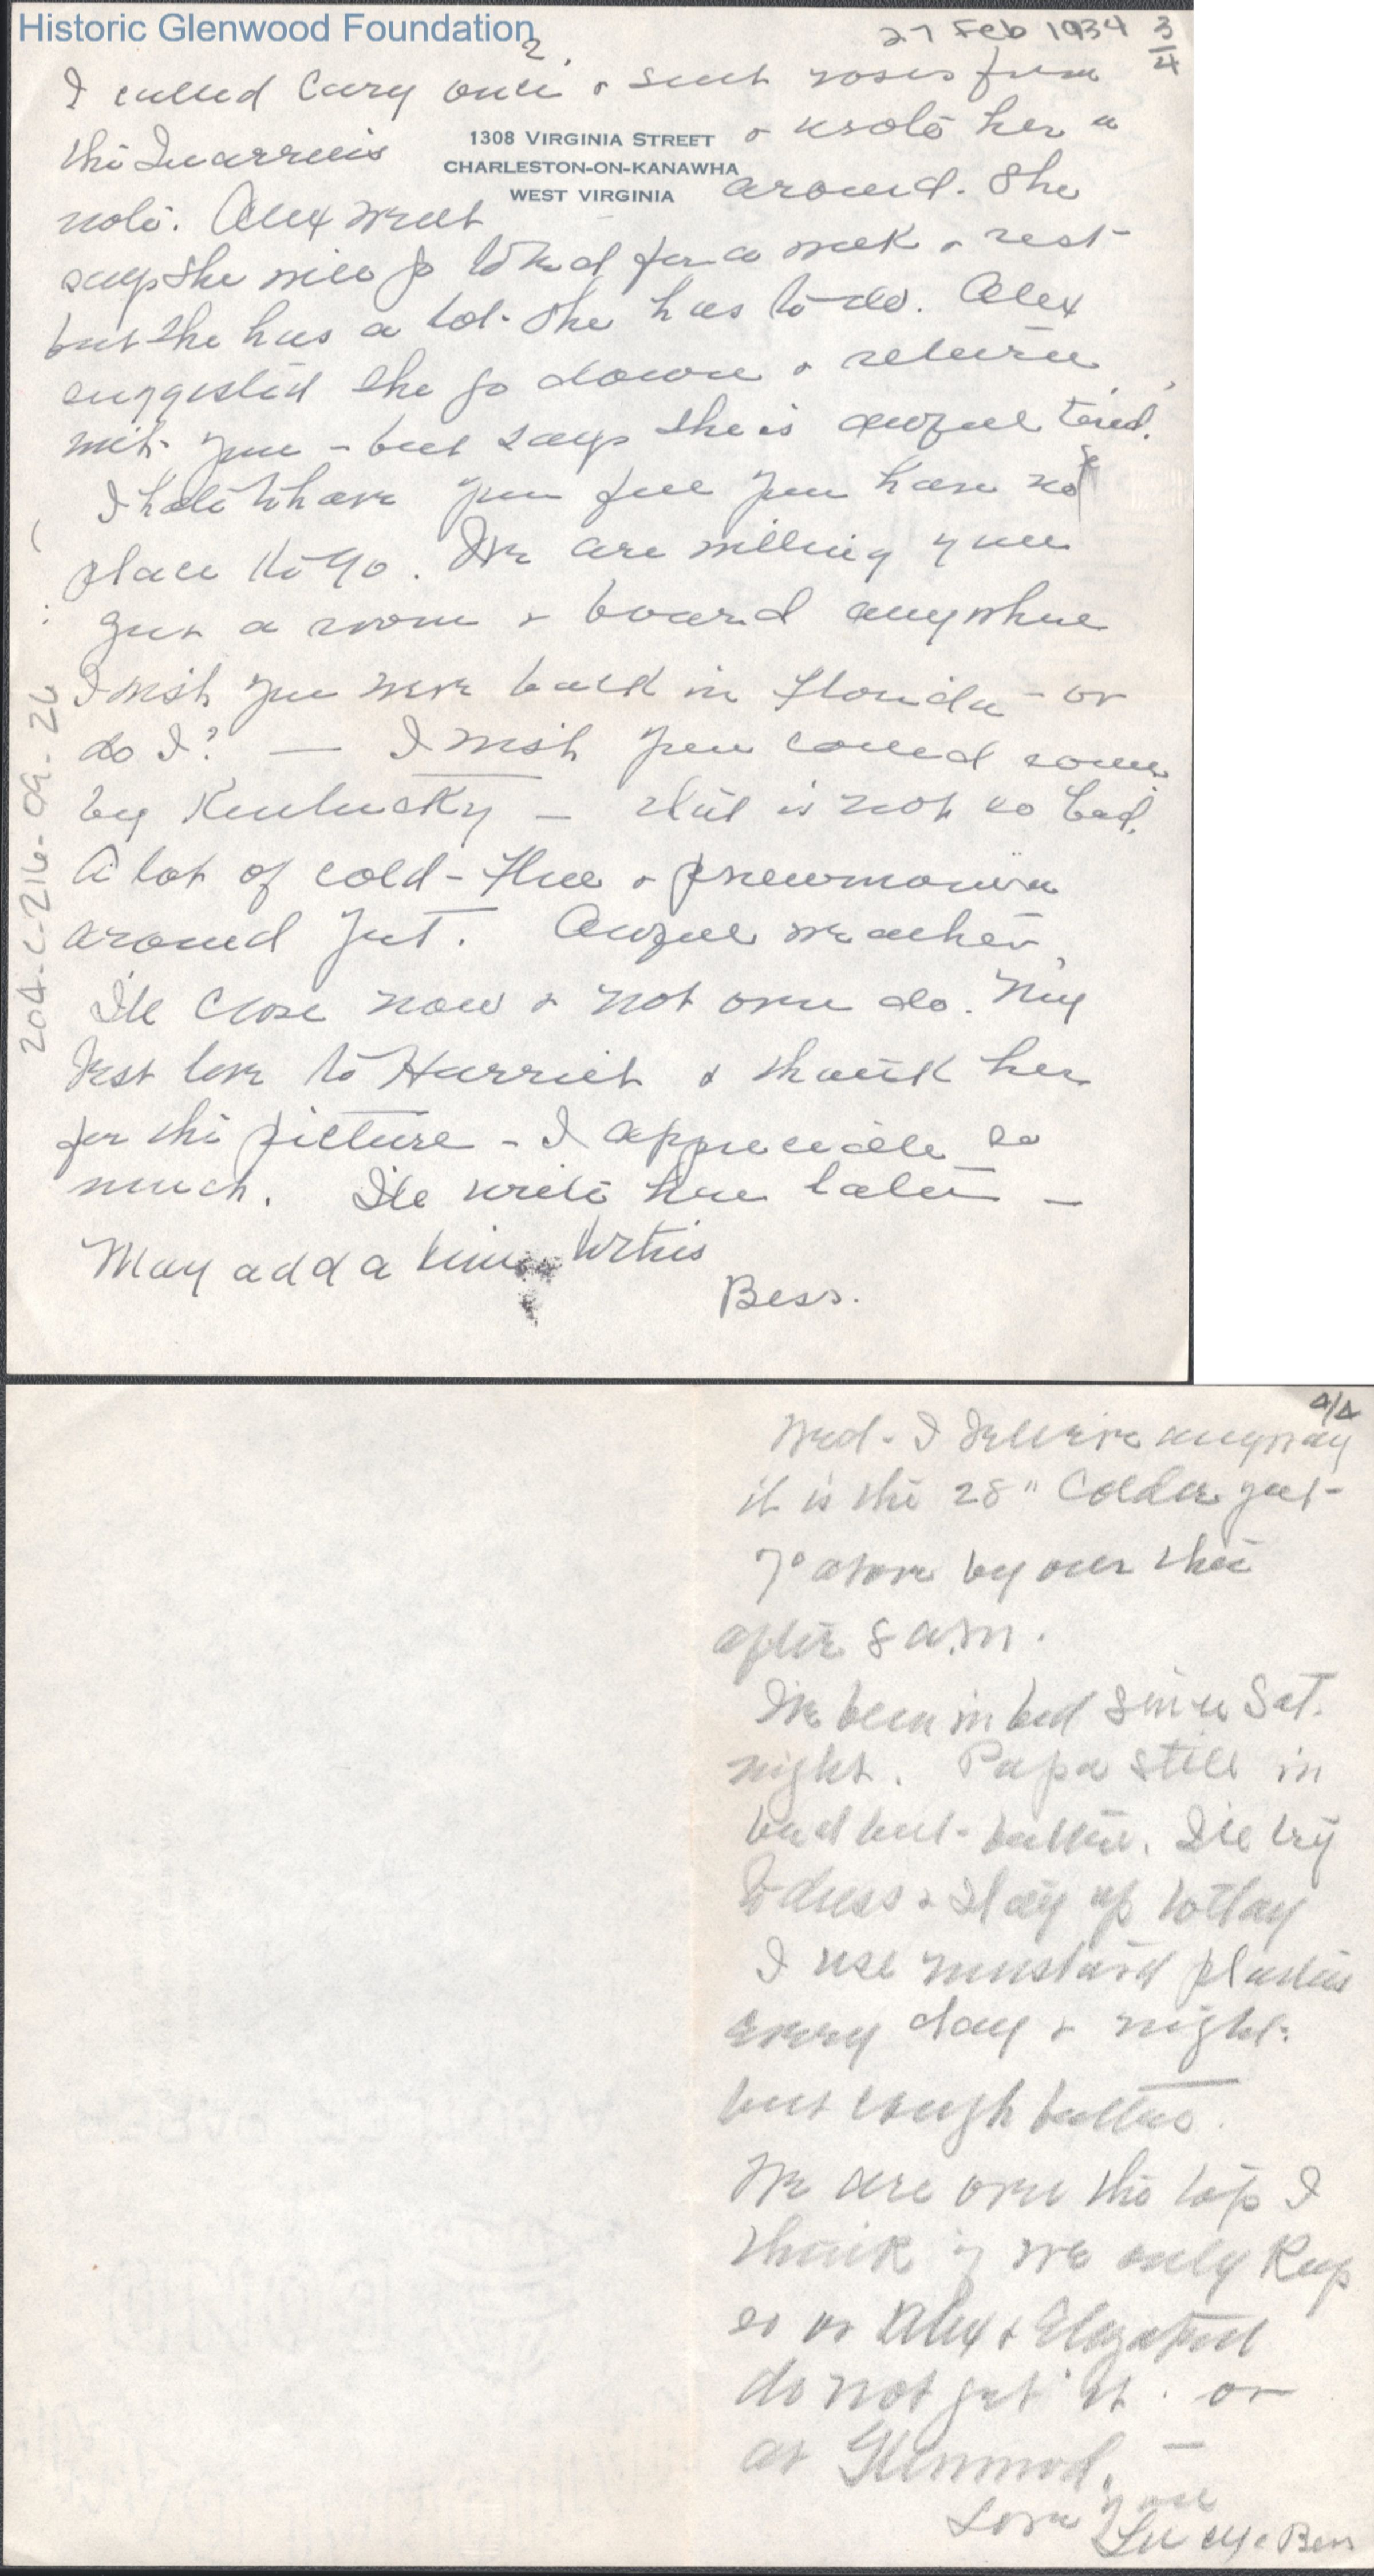 Historic Glenwood Foundation
27 Feb 1934 3/4
2.
I called Cary once & sent roses from
the Quarriers & wrote her a
1308 VIRGINIA STREET
CHARLESTON-ON-KANAWHA
WEST VIRGINIA
note. Alex went around. She
says she will go to bed for a week & rest
but she has a lot she has to do. Alex
suggested she go down & return
with you – but says she is awful tired.
I hate to have you feel you have no
place to go. We are willing you
get a room & board anywhere
I wish you were back in Florida – or
do I? — I wish you could come
by Kentucky — that is not so bad.
A lot of cold – flue & pneumonia
around yet. Awful weather,
I'll close now & not over do. My
best love to Harriet & thank her
for the picture – I appreciate so
much. I'll write her later —
May add a line to this
Bess.
204-C-216-09-26
4/4
Wed – I believe anyway
it is the 28" Colder yet –
7° above by our
after 8 a.m.
I've been in bed since Sat.
night. Papa still in
bed but better. I'll try
to dress & stay up today
I use mustard plasters
every day & night.
but cough better.
We are over the top I
think if we only keep
so or Alex & Elizabeth
do not get it. or
at Glenwood. —
Love you
Bess